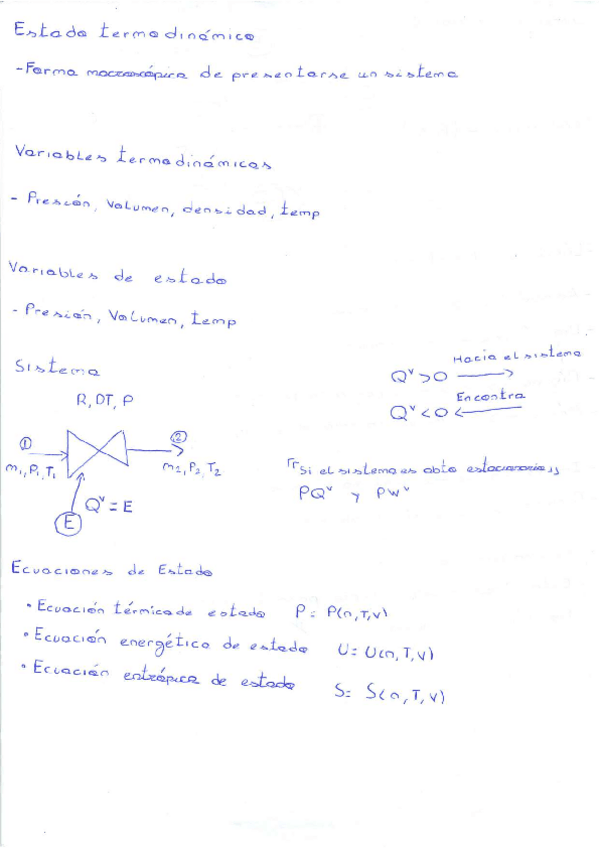 Estado termodinámico
- Forma macroscópica de presentarse un sistema
Variables termodinámicas
- Presión, Volumen, densidad, temp
Variables de estado
- Presión, Volumen, temp
Sistema
R, DT, P
① ②
m₁, P₁, T₁ m₂, P₂, T₂
Qᵛ = E
E
Hacia el sistema
Qᵛ > 0
En contra
Qᵛ < 0
"Si el sistema es abto estacionario"
PQᵛ y PWᵛ
Ecuaciones de Estado
• Ecuación térmica de estado P = P(n,T,V)
• Ecuación energética de estado U = U(n,T,V)
• Ecuación entrópica de estado S = S(n,T,V)